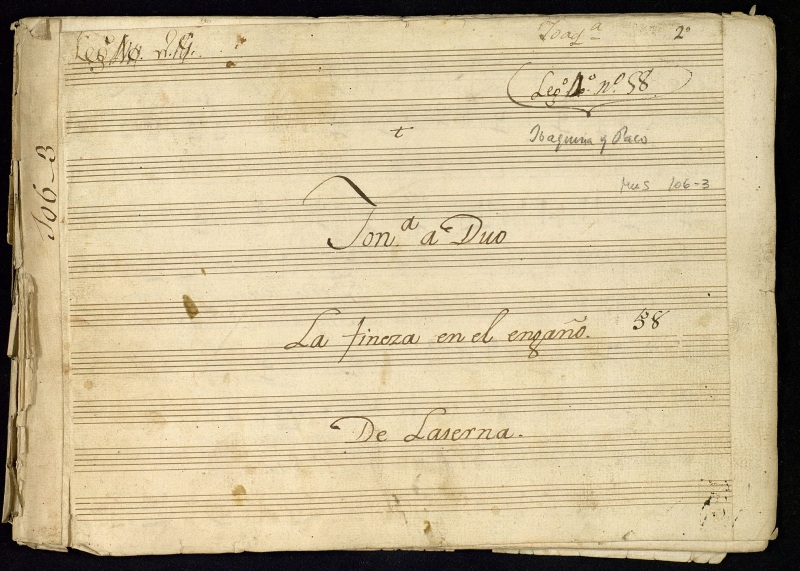 Joaq.ª 2º
Leg.º
Leg.º 4.º n.º 58.
t
Joaquina y Paco
Mus 106-3
106-3
Ton.ª a Duo
La fineza en el engaño. 58
De Laserna.